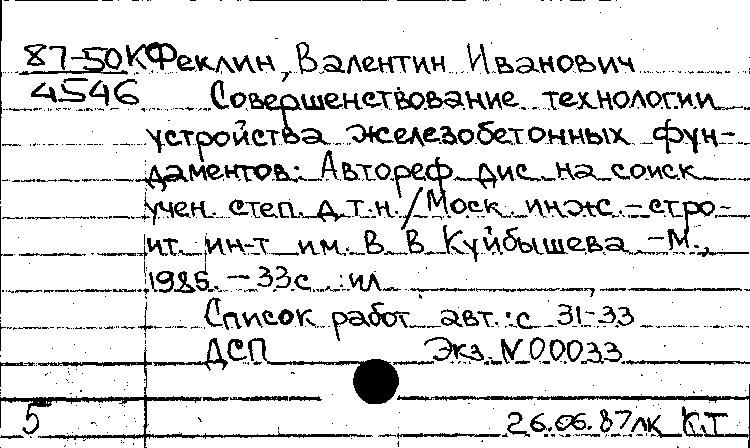 87-50К Феклин, Валентин Иванович
4546 Совершенствование технологии
устройства железобетонных фун-
даментов: Автореф. дис. на соиск.
учен. степ. д.т.н. / Моск. инж.-стро-
ит. ин-т им. В. В. Куйбышева. - М.,
1985. - 33 с. : ил.
Список работ авт.: с 31-33
ДСП Экз. N 00033
5 26.06.87 лк К.Т